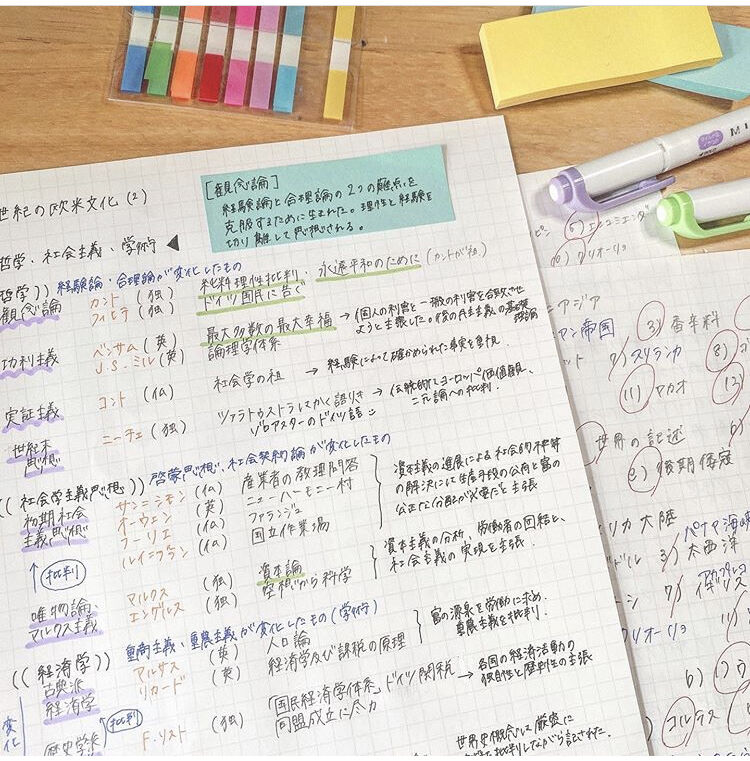 世紀の欧米文化(2)
[観念論]
経験論と合理論の2つの難点を
克服するために生まれた。理性と経験を
切り離して思想される。
哲学・社会主義・学術 ◀
哲学)) 経験論・合理論が変化したもの
観念論 カント (独) 純粋理性批判、永遠平和のために (カントが祖)
フィヒテ (独) ドイツ国民に告ぐ
功利主義 ベンサム (英) 最大多数の最大幸福 → 個人の利害と一般の利害を合致させ
ようと主張した。後の民主主義の基礎
理論
J.S.ミル (英) 論理学体系
実証主義 コント (仏) 社会学の祖 → 経験によって確かめられた事実を重視.
世紀末
思想
ニーチェ (独) ツァラトゥストラはかく語りき
ゾロアスターのドイツ語
→ 伝統的なヨーロッパ的価値観、
二元論への批判.
((社会主義思想)) 啓蒙思想、社会契約論が変化したもの
初期社会
主義思想
サン=シモン (仏) 産業者の教理問答
オーウェン (英) ニューハーモニー村
フーリエ (仏) ファランジュ
ルイ=ブラン (仏) 国立作業場
資本主義の進展による社会的弊害
の解決には生産手段の公有と富の
公正な分配が必要だと主張
↑ 批判
唯物論、
マルクス主義
マルクス (独) 資本論
エンゲルス (独) 空想から科学
資本主義の分析、労働者の団結と、
社会主義の実現を主張.
((経済学)) 重商主義、重農主義が変化したもの(学術)
古典派
経済学
マルサス (英) 人口論
リカード (英) 経済学及び課税の原理
富の源泉を労働に求め、
重農主義を批判.
変化
↑ 批判
歴史学派
F.リスト (独) 「国民経済学体系」ドイツ関税
同盟成立に尽力
→ 各国の経済活動の
独自性と歴史性の主張
世界史概念として厳密に
批判しながら記された.
アジア
マン帝国
3) 香辛料
7) スリランカ
8)
(11) マカオ
世界の記述
e) 後期倭寇
リカ大陸
パナマ海峡
3) 大西洋
アカプルコ
7) イギリス
クリオーリョ
b)
コルテス
e) クリオーリョ